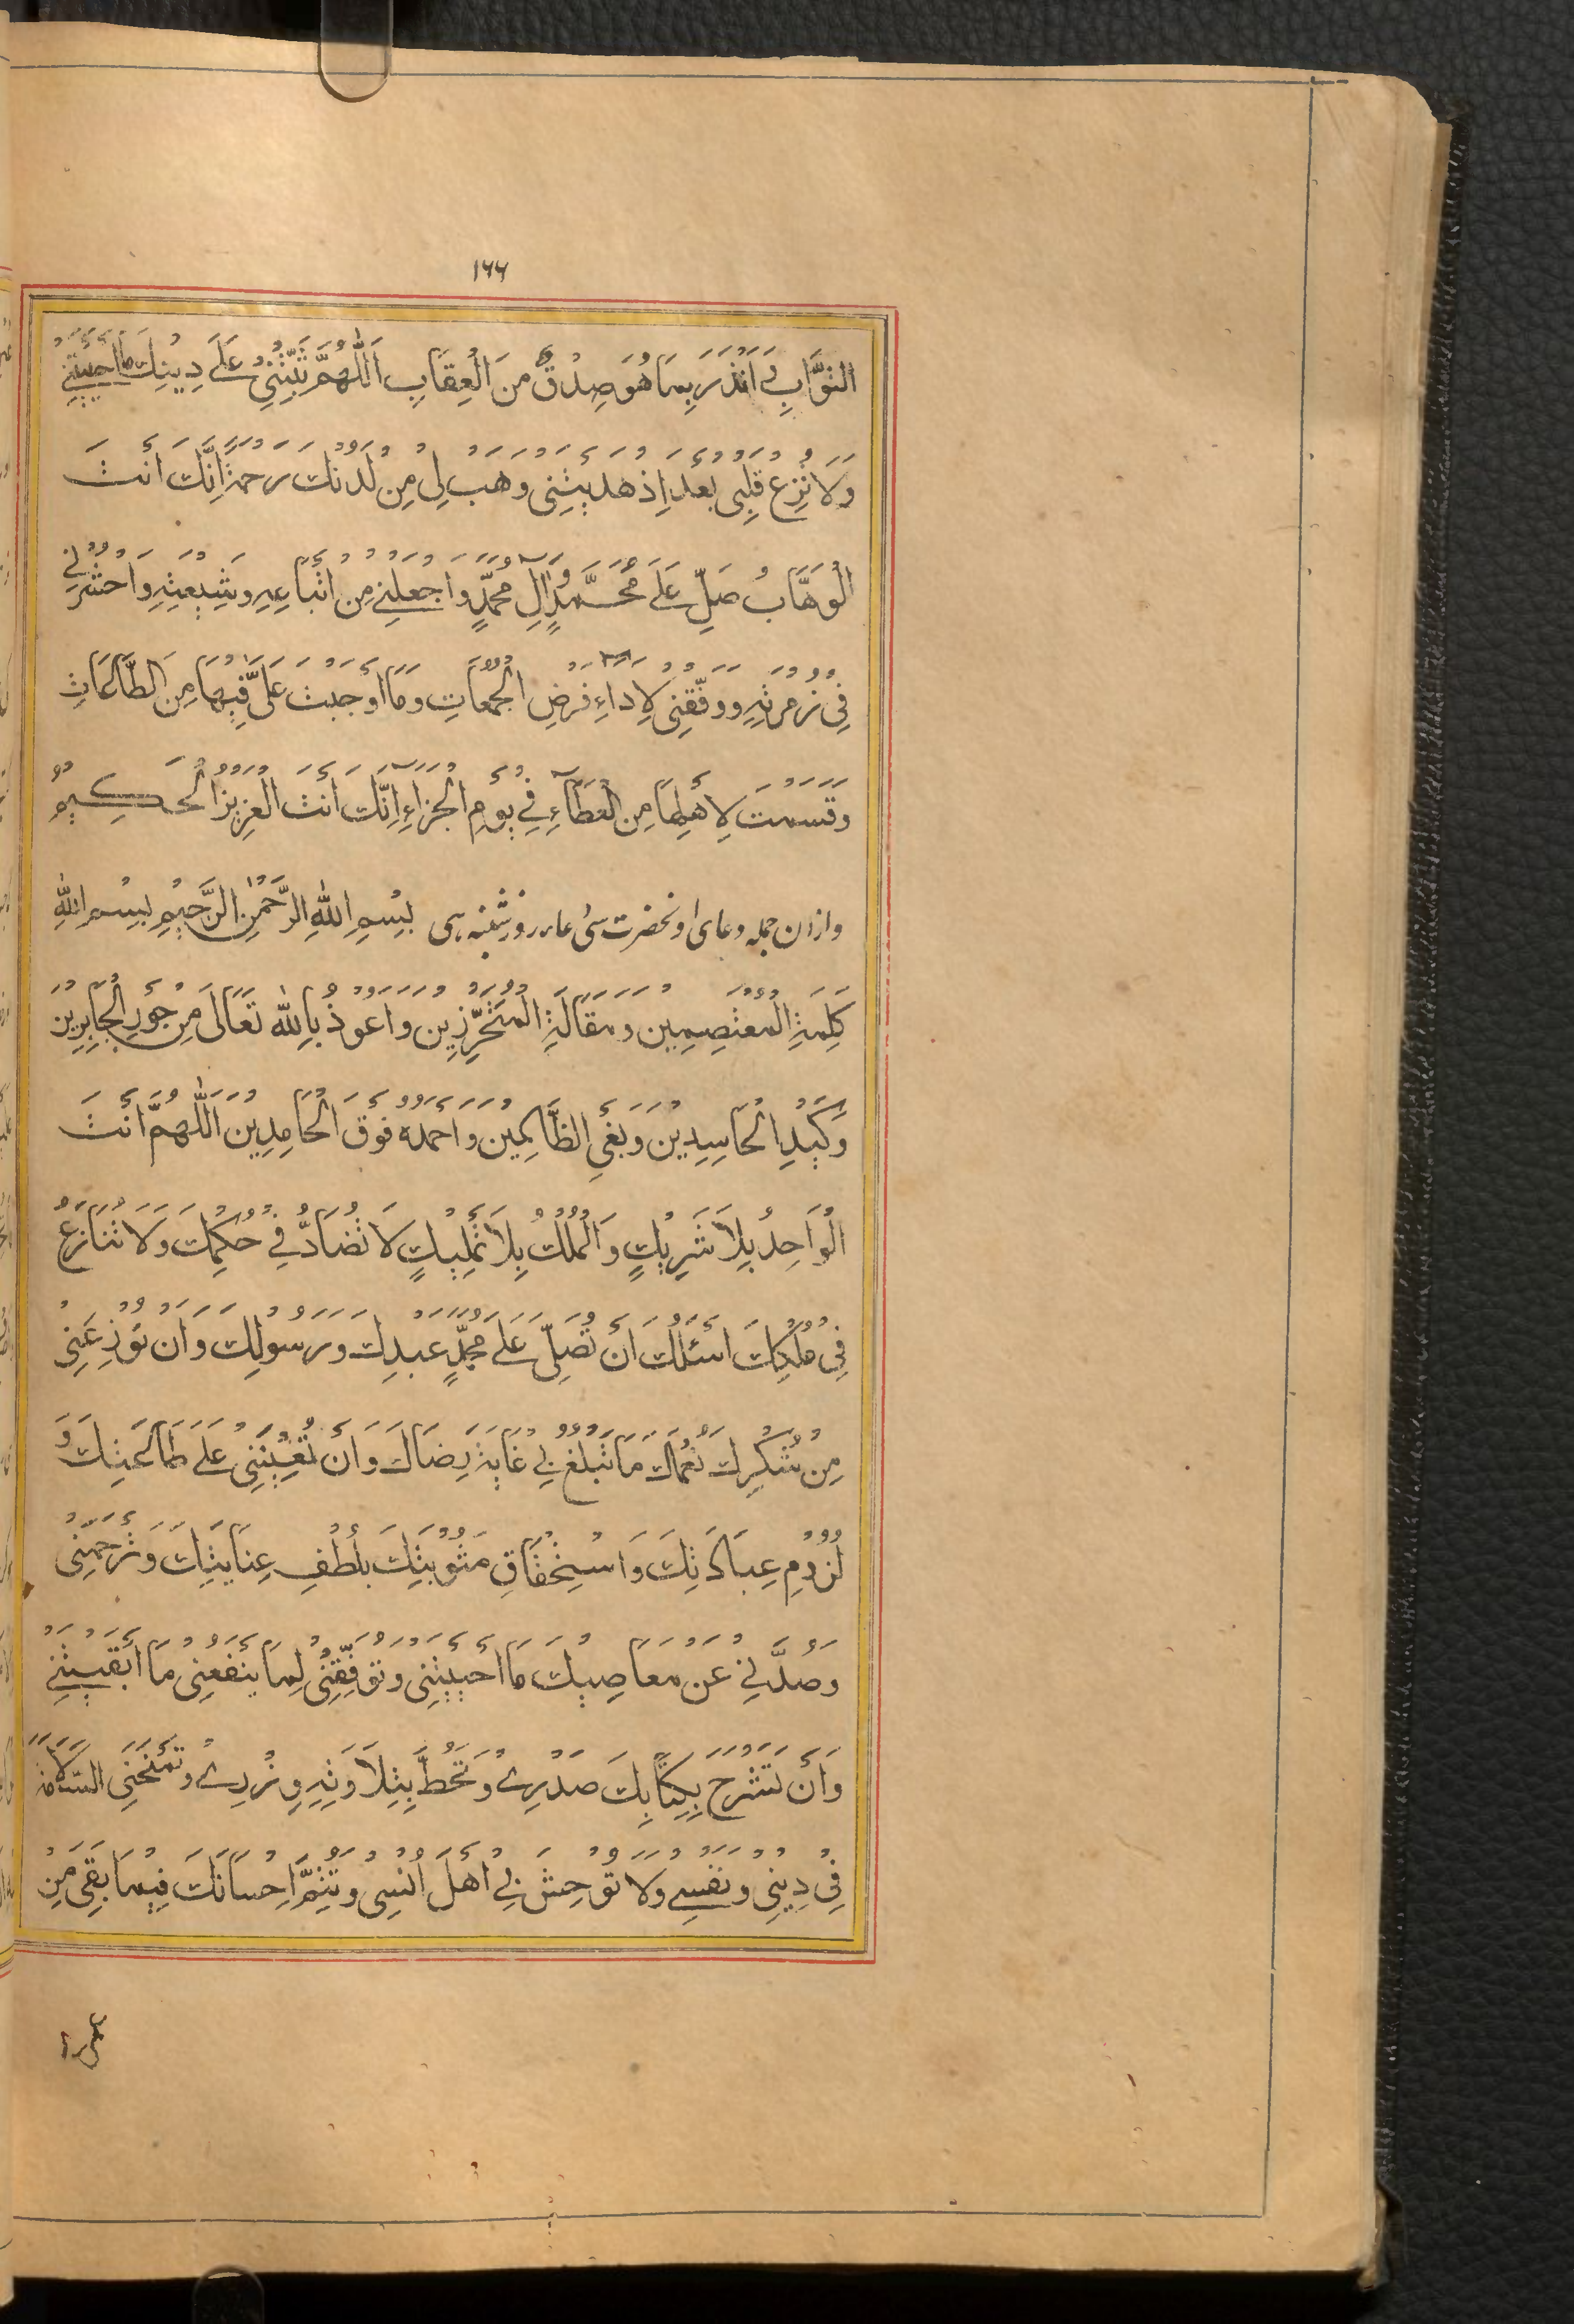 ١٦٦
الثَّوَابِ وَ اَنْذَرَ بِمَا هُوَ صِدْقٌ مِنَ الْعِقَابِ اَللّٰهُمَّ ثَبِّتْنِيْ عَلَى دِيْنِكَ مَا اَحْيَيْتَنِيْ
وَلَا تُزِغْ قَلْبِى بَعْدَ اِذْ هَدَيْتَنِى وَهَبْ لِى مِنْ لَدُنْكَ رَحْمَةً اِنَّكَ اَنْتَ
الْوَهَّابُ صَلِّ عَلَى مُحَمَّدٍ وَاٰلِ مُحَمَّدٍ وَاجْعَلْنِيْ مِنْ اَتْبَاعِهِ وَشِيْعَتِهِ وَاحْشُرْنِيْ
فِيْ زُمْرَتِهِ وَوَفِّقْنِيْ لِاَدَاءِ فَرْضِ الْجُمُعَاتِ وَمَا اَوْجَبْتَ عَلَيَّ فِيْهَا مِنَ الطَّاعَاتِ
وَقَسَمْتَ لِاَهْلِهَا مِنَ الْعَطَآءِ فِيْ يَوْمِ الْجَزَآءِ اِنَّكَ اَنْتَ الْعَزِيْزُ الْحَكِيْمُ
وازان جمله دعاى اونحضرت سىٔ عاىر روز شنبه ىسى بِسْمِ اللّٰهِ الرَّحْمٰنِ الرَّحِيْمِ بِسْمِ اللّٰهِ
كَلِمَةِ الْمُعْتَصِمِيْنَ وَمَقَالَةِ الْمُتَحَرِّزِيْنَ وَاَعُوْذُ بِاللّٰهِ تَعَالَى مِنْ جَوْرِ الْجَايِرِيْنَ
وَكَيْدِ الْحَاسِدِيْنَ وَبَغْيِ الظَّالِمِيْنَ وَاَحْمَدُهُ فَوْقَ الْحَامِدِيْنَ اَللّٰهُمَّ اَنْتَ
الْوَاحِدُ بِلَا شَرِيْكٍ وَالْمَلِكُ بِلَا تَمْلِيْكٍ لَا تُضَادُّ فِيْ حُكْمِكَ وَلَا تُنَازَعُ
فِيْ مُلْكِكَ اَسْئَلُكَ اَنْ تُصَلِّيَ عَلَى مُحَمَّدٍ عَبْدِكَ وَرَسُوْلِكَ وَاَنْ تُوْزِعَنِيْ
مِنْ شُكْرِكَ نُعْمَاكَ مَا تَبْلُغُ بِيْ غَايَةَ رِضَاكَ وَاَنْ تُعِيْنَنِيْ عَلَى طَاعَتِكَ وَ
لُزُوْمِ عِبَادَتِكَ وَاسْتِحْقَاقِ مَثُوْبَتِكَ بِلُطْفِ عِنَايَتِكَ وَتَرْحَمَنِيْ
وَصُدَّنِيْ عَنْ مَعَاصِيْكَ مَا اَحْيَيْتَنِى وَتُوَفِّقَنِيْ لِمَا يَنْفَعُنِيْ مَا اَبْقَيْتَنِيْ
وَاَنْ تَشْرَحَ بِكِتَابِكَ صَدْرِيْ وَتَحُطَّ بِتِلَاوَتِهِ وِزْرِيْ وَتَمْنَحَنِى السَّلَامَةَ
فِيْ دِيْنِيْ وَنَفْسِيْ وَلَا تُوْحِشَ بِيْ اَهْلَ اُنْسِيْ وَتُتِمَّ اِحْسَانَكَ فِيْمَا بَقِيَ مِنْ
عمرى